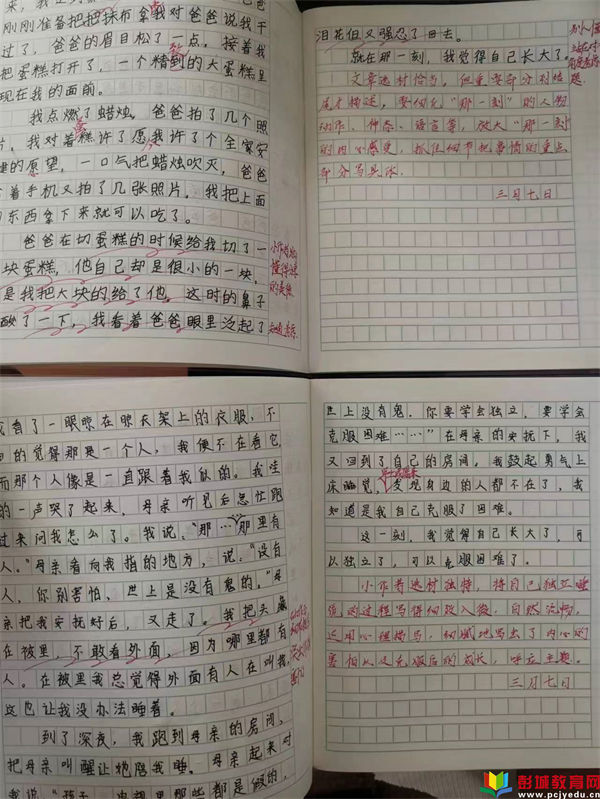 刚刚准备把把抹布拿我对爸爸说我干
过了，爸爸的眉目松了一点。接着我
把蛋糕打开了，一个精到的大蛋糕里
现在我的面前。
我点燃了蜡烛，爸爸拍了几个照
片，我对着糕许了愿我许了个全家安
健的愿望，一口气把蜡烛吹灭，爸爸
着手机又拍了几张照片，我把上面
东西拿下来就可以吃了。
爸爸在切蛋糕的时候给我切了一
块蛋糕，他自己却是很小的一块，
是我把大块的给了他，这时的鼻子
酸了一下，我看着爸爸眼里泛起了
泪花但又强忍了回去。
就在那一刻，我觉得自己长大了。
文章选材恰当，但重要部分别结
尾才描述，要细化“那一刻”的人物
动作、神态、语言等，放大“那一刻
的内心感受，抓住细节把事情的重点
部分写具体。
三月七日
我看了一眼晾在晾衣架上的衣服，不
的觉得那是一个人，我便不在看它
而那个人像是一直跟着我似的。我哇
的一声哭了起来，母亲听见后急忙跑
过来问我怎么了。我说，“那…那里有
人。”母亲看向我指的地方，说，“没有
人，你别害怕，世上是没有鬼的。”母
亲把我安抚好后，又走了。我把头藏
在被里，不敢看外面，因为哪里都有
人。在被里我总觉得外面有人在叫我，
这也让我没办法睡着。
到了深夜，我跑到母亲的房间，
把母亲叫醒让她陪我睡。母亲起来对
我说“孩子，
那些都是假的，
世上没有鬼。你要学会独立，要学会
克服困难……”在母亲的安抚下，我
又回到了自己的房间，我鼓起勇气上
床睡觉，发现身边的人都不在了，我
知道是我自己克服了困难。
这一刻，我觉得自己长大了，可
以独立了，可以克服困难了。
小作者选材独特，将自己独立睡
觉的过程写得细致入微，自然流畅，
运用心理描写，细腻地写出了内心的
害怕以及克服后的成长，呼应主题。
三月七日
彭城教育网
www.pcjyedu.cn